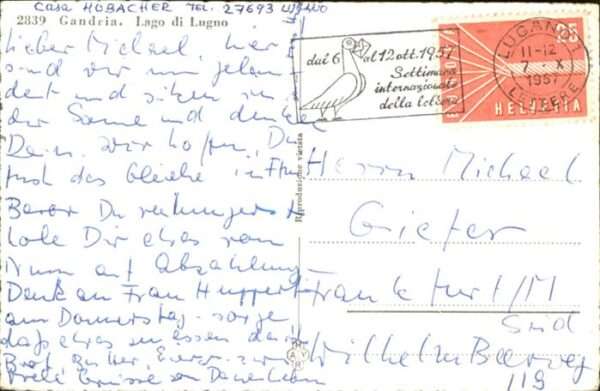 Casa HUBACHER TEL. 27693 LUGANO
2839 Gandria. Lago di Lugno
Lieber Michael, hier
sind wir nun gelan
det und sitzen in
der Sonne und denken
Dein. Wir hoffen, Du
tust das Gleiche in Ffm
Bevor Du verhungerst
hole Dir etwas von
auf Abzahlung
Denk an Frau Huppert
am Donnerstag. sorge
daß etwas zu essen da ist
Brot,
Viele Grüsse von Deinen Lieben
Riproduzione vietata
dal 6 al 12 ott. 1957
Settimana
internazionale
della lettera
LUGANO 1
11-12
7 - X
1957
LETTERE
25
HELVETIA
Herrn Michael
Giefer
Frankfurt/M
Süd
Wilhelm Beerweg
119